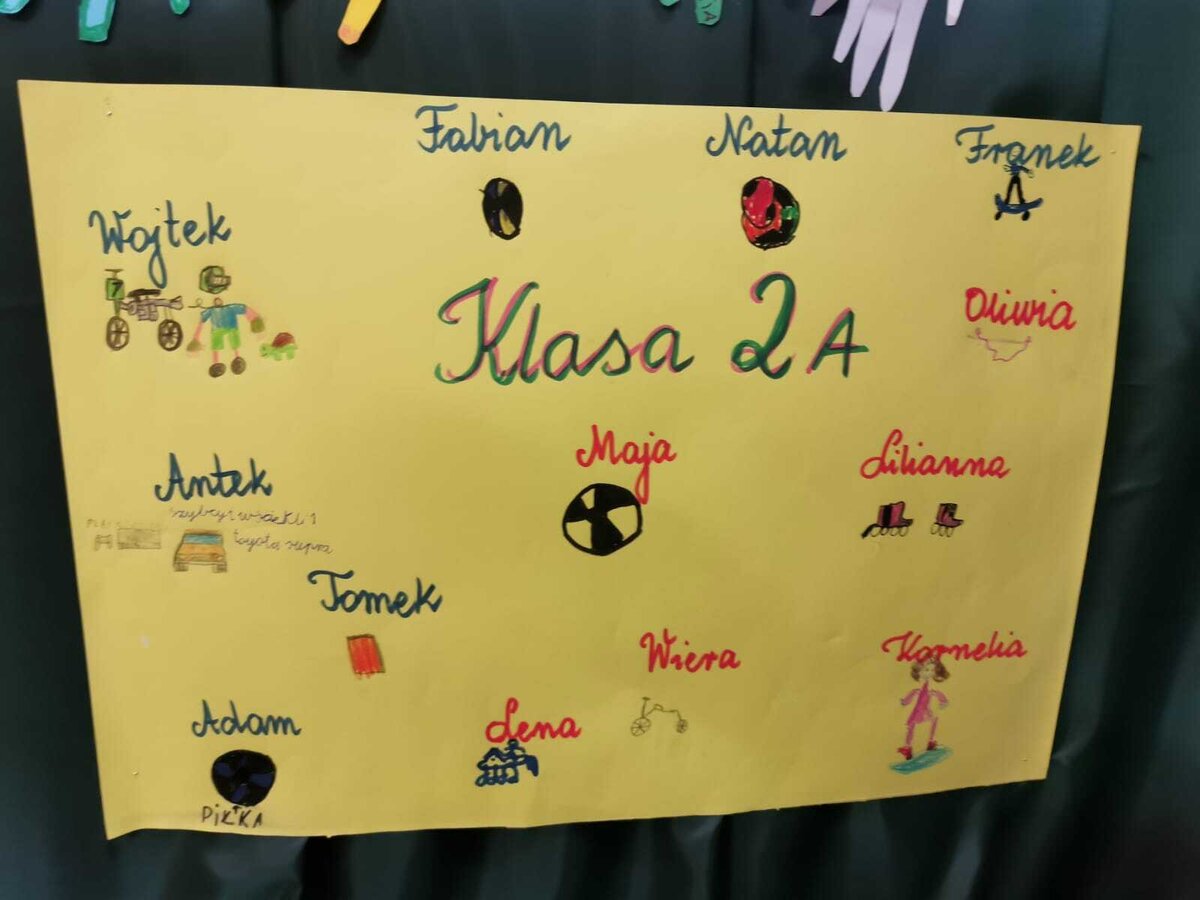 Fabian
Natan
Franek
Wojtek
7
Klasa 2A
Oliwia
Maja
Lilianna
Antek
szybcy i wściekli 1
toyota supra
Tomek
Wiera
Kornelia
Adam
Lena
PIŁKA